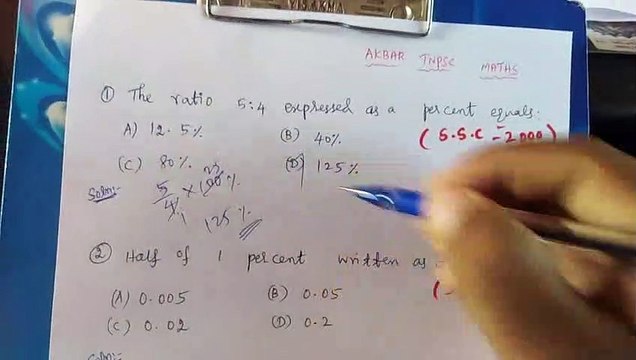 VISAKHA
AKBAR TNPSC MATHS
① The ratio 5:4 expressed as a percent equals:
A) 12.5% (B) 40% (S.S.C - 2000)
(C) 80% (D) 125%
Soln:- 5/4 × 100%
125%
② Half of 1 percent written as
(A) 0.005 (B) 0.05
(C) 0.02 (D) 0.2
Soln:-